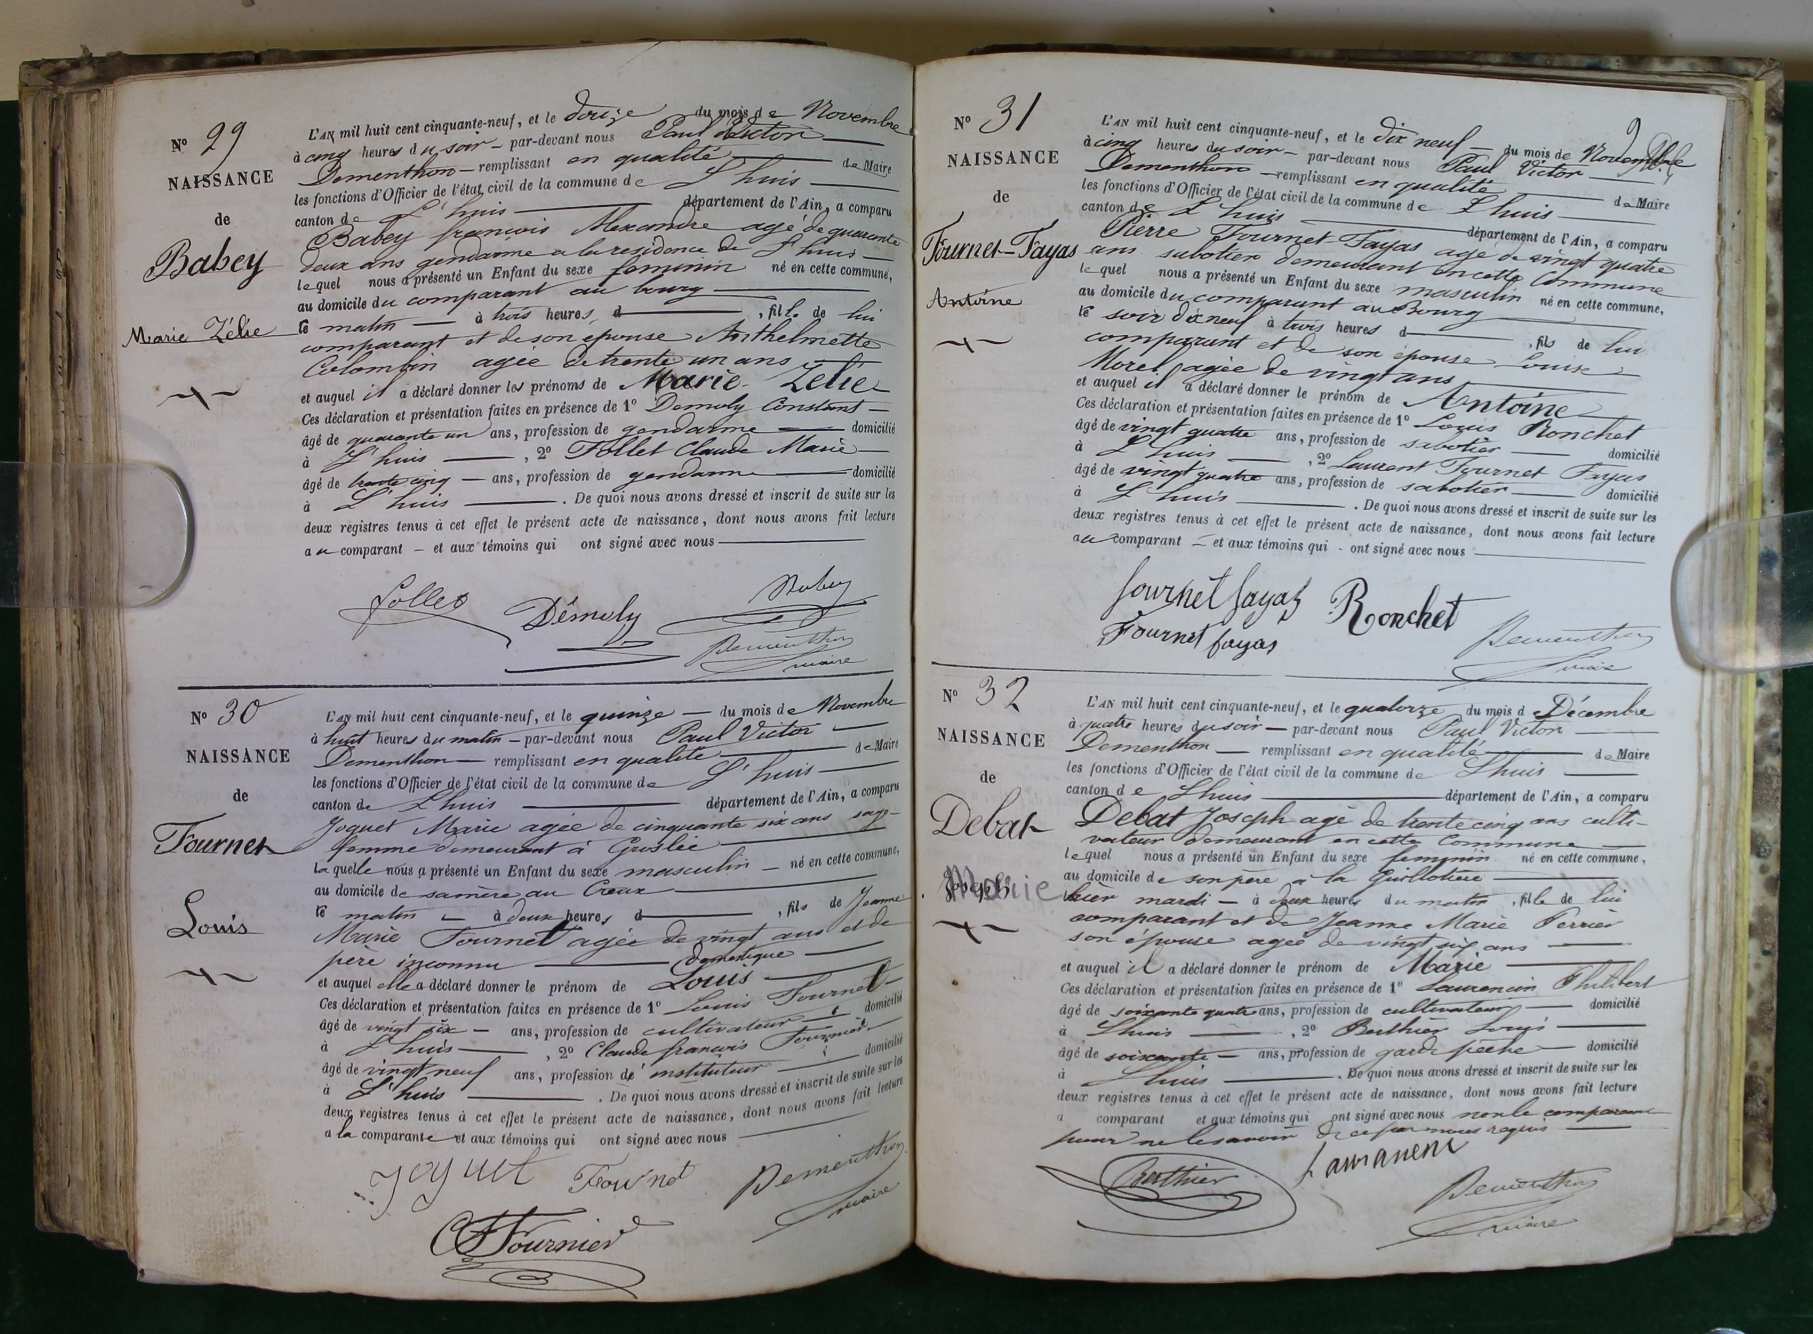 N° 29
NAISSANCE
de
Babey
Marie Zélie
L'AN mil huit cent cinquante-neuf, et le douze du mois de Novembre
à cinq heures du soir – par-devant nous Paul Victor
Dementhon – remplissant en qualité de Maire
les fonctions d'Officier de l'état civil de la commune de L'huis
canton de L'huis département de l'Ain, a comparu
Babey françois Alexandre agé de quarante
deux ans gendarme a la residence de L'huis
lequel nous a présenté un Enfant du sexe feminin né en cette commune,
au domicile du comparant au bourg
le matin – à trois heures, d , fille de lui
comparant et de son epouse Anthelmette
Colombin agée de trente un ans
et auquel il a déclaré donner les prénoms de Marie Zelie
Ces déclaration et présentation faites en présence de 1° Demoly Constant
âgé de quarante un ans, profession de gendarme domicilié
à L'huis , 2° Follet Claude Marie
âgé de trente cinq – ans, profession de gendarme domicilié
à L'huis . De quoi nous avons dressé et inscrit de suite sur les
deux registres tenus à cet effet le présent acte de naissance, dont nous avons fait lecture
au comparant – et aux témoins qui ont signé avec nous
Follet Démoly Babey
Dementhon
maire
N° 30
NAISSANCE
de
Fournet
Louis
L'AN mil huit cent cinquante-neuf, et le quinze – du mois de Novembre
à huit heures du matin – par-devant nous Paul Victor
Dementhon – remplissant en qualité de Maire
les fonctions d'Officier de l'état civil de la commune de L'huis
canton de L'huis département de l'Ain, a comparu
Joguet Marie agée de cinquante six ans sage-
femme demeurant à Groslée
laquelle nous a présenté un Enfant du sexe masculin – né en cette commune,
au domicile de sa mère au Creux
le matin – à deux heures d , fils de Jeanne
Marie Fournet agée de vingt ans et de
pere inconnu domestique
et auquel elle a déclaré donner le prénom de Louis
Ces déclaration et présentation faites en présence de 1° Louis Fournet
âgé de vingt six – ans, profession de cultivateur domicilié
à L'huis , 2° Claude françois Fournier
âgé de vingt neuf ans, profession d' instituteur domicilié
à L'huis . De quoi nous avons dressé et inscrit de suite sur les
deux registres tenus à cet effet le présent acte de naissance, dont nous avons fait lecture
a la comparante et aux témoins qui ont signé avec nous
Joguet Fournet Dementhon
maire
Fournier
N° 31
NAISSANCE
de
Fournet-Fayas
Antoine
L'AN mil huit cent cinquante-neuf, et le dix neuf – du mois de Novembre
à cinq heures du soir – par-devant nous Paul Victor
Dementhon – remplissant en qualité de Maire
les fonctions d'Officier de l'état civil de la commune de L'huis
canton de L'huis département de l'Ain, a comparu
Pierre Fournet Fayas agé de vingt quatre
ans sabotier demeurant en cette Commune
lequel nous a présenté un Enfant du sexe masculin né en cette commune,
au domicile du comparant au Bourg
le soir dix neuf à trois heures d , fils de lui
comparant et de son épouse Louise
Morel agée de vingt ans
et auquel il a déclaré donner le prénom de Antoine
Ces déclaration et présentation faites en présence de 1° Louis Ronchet
âgé de vingt quatre ans, profession de sabotier domicilié
à L'huis , 2° Laurent Fournet Fayas
âgé de vingt quatre ans, profession de sabotier domicilié
à L'huis . De quoi nous avons dressé et inscrit de suite sur les
deux registres tenus à cet effet le présent acte de naissance, dont nous avons fait lecture
au comparant – et aux témoins qui - ont signé avec nous
fournet fayas Ronchet
Fournet fayas Dementhon
maire
N° 32
NAISSANCE
de
Debat
Marie
L'AN mil huit cent cinquante-neuf, et le quatorze du mois d Décembre
à quatre heures du soir – par-devant nous Paul Victor
Dementhon – remplissant en qualité de Maire
les fonctions d'Officier de l'état civil de la commune de Lhuis
canton de Lhuis département de l'Ain, a comparu
Debat Joseph agé de trente cinq ans culti-
vateur demeurant en cette Commune
lequel nous a présenté un Enfant du sexe feminin né en cette commune,
au domicile de son père à la Guillotière
hier mardi – à deux heures du matin , fille de lui
comparant et de Jeanne Marie Perrier
son épouse agée de vingt six ans
et auquel il a déclaré donner le prénom de Marie
Ces déclaration et présentation faites en présence de 1° Laurencin Philibert
âgé de soixante quatre ans, profession de cultivateur domicilié
à Lhuis , 2° Berthier Louis
âgé de soixante – ans, profession de garde pêche domicilié
à Lhuis . De quoi nous avons dressé et inscrit de suite sur les
deux registres tenus à cet effet le présent acte de naissance, dont nous avons fait lecture
a comparant et aux témoins qui ont signé avec nous non le comparant
pour ne le savoir de ce par nous requis
Berthier
Dementhon
maire